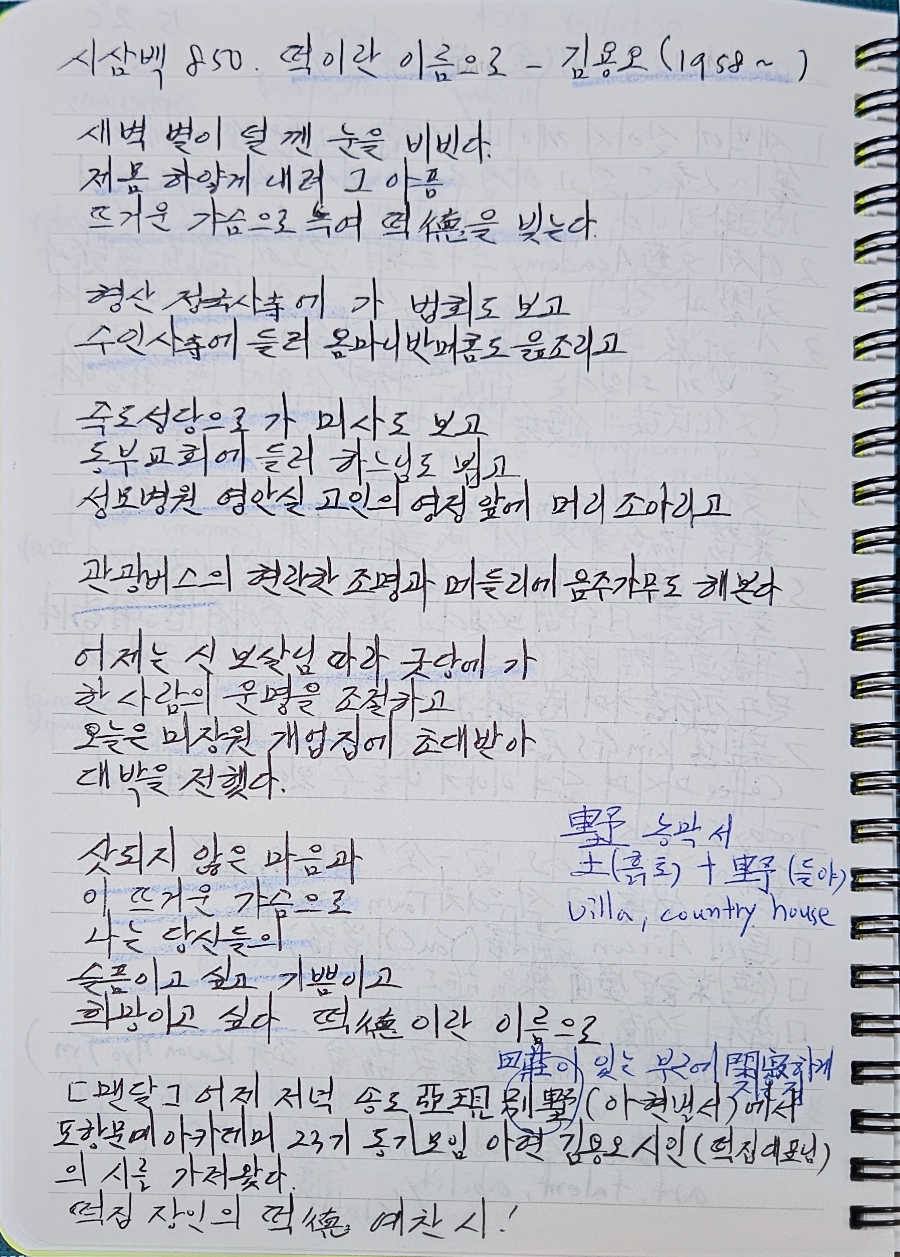 시삼백 850. 떡이란 이름으로 - 김용오(1958~ )
새벽 별이 덜 깬 눈을 비빈다.
제몸 하얗게 내려 그 아픔
뜨거운 가슴으로 녹여 떡德을 빚는다.
형산 접국사寺에 가 법회도 보고
수인사寺에 들러 옴마니반메훔도 읊조리고
죽도성당으로 가 미사도 보고
동부교회에 들러 하느님도 뵙고
성모병원 영안실 고인의 영정 앞에 머리 조아리고
관광버스의 현란한 조명과 메들리에 음주가무도 해본다
어제는 신 보살님 따라 굿당에 가
한 사람의 운명을 조절하고
오늘은 미장원 개업집에 초대받아
대박을 전했다.
삿되지 않은 마음과
이 뜨거운 가슴으로
나는 당신들의
슬픔이고 싶고 기쁨이고
희망이고 싶다 떡德이란 이름으로
墅 농막 서
土(흙토) + 野(들야)
villa, country house
田莊이 있는 부근에 閑寂하게
지은 집
ㄷ맨달그 어제 저녁 송도 亞現別墅(아현별서)에서
포항문예아카데미 23기 동기모임 아현 김용오시인(떡집대표님)
의 시를 가져왔다.
떡집 장인의 떡德 예찬 시!